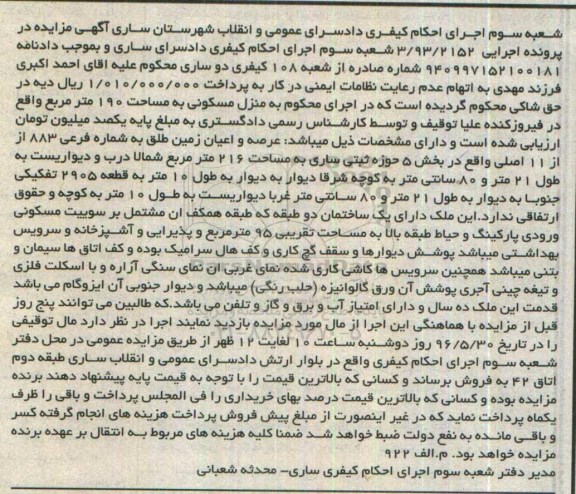 شعبه سوم اجرای احکام کیفری دادسرای عمومی و انقلاب شهرستان ساری آگهی مزایده در
پرونده اجرایی ۳/۹۳/۲۱۵۲ شعبه سوم اجرای احکام کیفری دادسرای ساری و بموجب دادنامه
۹۴۰۹۹۷۱۵۲۱۰۰۱۸۱ شماره صادره از شعبه ۱۰۸ کیفری دو ساری محکوم علیه اقای احمد اکبری
فرزند مهدی به اتهام عدم رعایت نظامات ایمنی در کار به پرداخت ۱/۰۱۰/۰۰۰/۰۰۰ ریال دیه در
حق شاکی محکوم گردیده است که در اجرای محکوم به منزل مسکونی به مساحت ۱۹۰ متر مربع واقع
در فیروزکنده علیا توقیف و توسط کارشناس رسمی دادگستری به مبلغ پایه یکصد میلیون تومان
ارزیابی شده است و دارای مشخصات ذیل میباشد: عرصه و اعیان زمین طلق به شماره فرعی ۸۸۳ از
از ۱۱ اصلی واقع در بخش ۵ حوزه ثبتی ساری به مساحت ۲۱۶ متر مربع شمالا درب و دیواریست به
طول ۲۱ متر و ۸۰ سانتی متر به کوچه شرقا دیوار به دیوار به طول ۱۰ متر به قطعه ۲۹۰۵ تفکیکی
جنوبا به دیوار به طول ۲۱ متر و ۸۰ سانتی متر غربا دیواریست به طول ۱۰ متر به کوچه و حقوق
ارتفاقی ندارد.این ملک دارای یک ساختمان دو طبقه که طبقه همکف ان مشتمل بر سوییت مسکونی
ورودی پارکینگ و حیاط طبقه بالا به مساحت تقریبی ۹۵ مترمربع و پذیرایی و آشپزخانه و سرویس
بهداشتی میباشد پوشش دیوارها و سقف گچ کاری و کف هال سرامیک بوده و کف اتاق ها سیمان و
بتنی میباشد همچنین سرویس ها کاشی کاری شده نمای غربی ان نمای سنگی آزاره و با اسکلت فلزی
و تیغه چینی آجری پوشش آن ورق گالوانیزه (حلب رنگی) میباشد و دیوار جنوبی آن ایزوگام می باشد
قدمت این ملک ده سال و دارای امتیاز آب و برق و گاز و تلفن می باشد.که طالبین می توانند پنج روز
قبل از مزایده با هماهنگی این اجرا از مال مورد مزایده بازدید نمایند اجرا در نظر دارد مال توقیفی
را در تاریخ ۹۶/۵/۳۰ روز دوشنبه ساعت ۱۰ لغایت ۱۲ ظهر از طریق مزایده عمومی در محل دفتر
شعبه سوم اجرای احکام کیفری واقع در بلوار ارتش دادسرای عمومی و انقلاب ساری طبقه دوم
اتاق ۴۲ به فروش برساند و کسانی که بالاترین قیمت را با توجه به قیمت پایه پیشنهاد دهند برنده
مزایده بوده و کسانی که بالاترین قیمت درصد بهای خریداری را فی المجلس پرداخت و باقی را ظرف
یکماه پرداخت نماید که در غیر اینصورت از مبلغ پیش فروش پرداخت هزینه های انجام گرفته کسر
و باقی مانده به نفع دولت ضبط خواهد شد ضمنا کلیه هزینه های مربوط به انتقال بر عهده برنده
مزایده خواهد بود. م.الف ۹۲۲
مدیر دفتر شعبه سوم اجرای احکام کیفری ساری- محدثه شعبانی